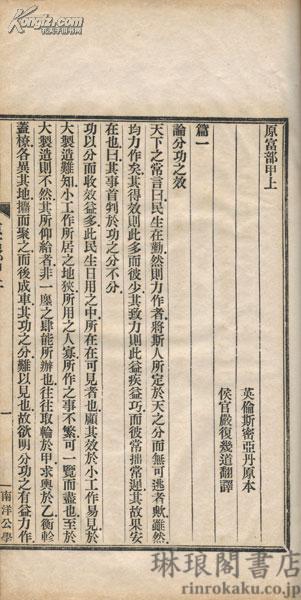 原富部甲上
英倫斯密亞丹原本
侯官嚴復幾道翻譯
篇一
論分功之效
天下之常言曰民生在勤然則力作者將斯人所定於天之分而無可逃者歟雖然
均力作矣其得效則此多而彼少其致力則此益疾益巧而彼常拙常遲其故果安
在也曰其事首判於功之分不分
功以分而收效益多此民生日用之中所在在可見者也顧其效於小工作易見於
大製造難知小工作所居之地狹所用之人寡所作之事不繁可一覽而盡也至於
大製造則不然其所仰給者非一廛之肆能所辦也往往取輪於甲求輿於乙衡軫
蓋橑各異其地攟而聚之而後成車其功之分難以見也故欲明分功之有益力作
一
南洋公學
孔夫子旧书网
www.kongfz.com
琳琅閣書店
rinrokaku.co.jp